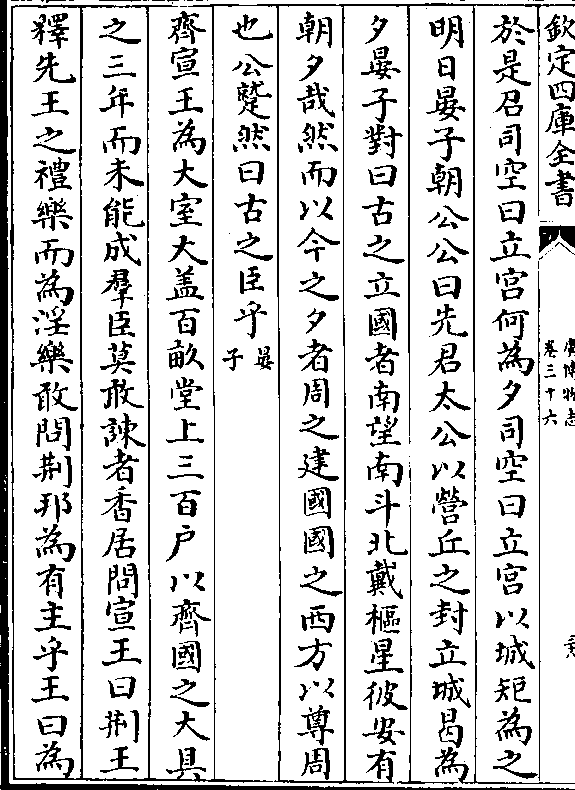 欽定四庫全書
廣博物志
卷三十六
於是召司空曰立宫何為夕司空曰立宫以城矩為之
明日晏子朝公公曰先君太公以營丘之封立城曷為
夕晏子對曰古之立國者南望南斗北戴樞星彼安有
朝夕哉然而以今之夕者周之建國國之西方以尊周
也公蹵然曰古之臣乎晏子
齊宣王為大室大盖百畝堂上三百户以齊國之大具
之三年而未能成羣臣莫敢諫者香居問宣王曰荆王
釋先王之禮樂而為淫樂敢問荆邦為有主乎王曰為